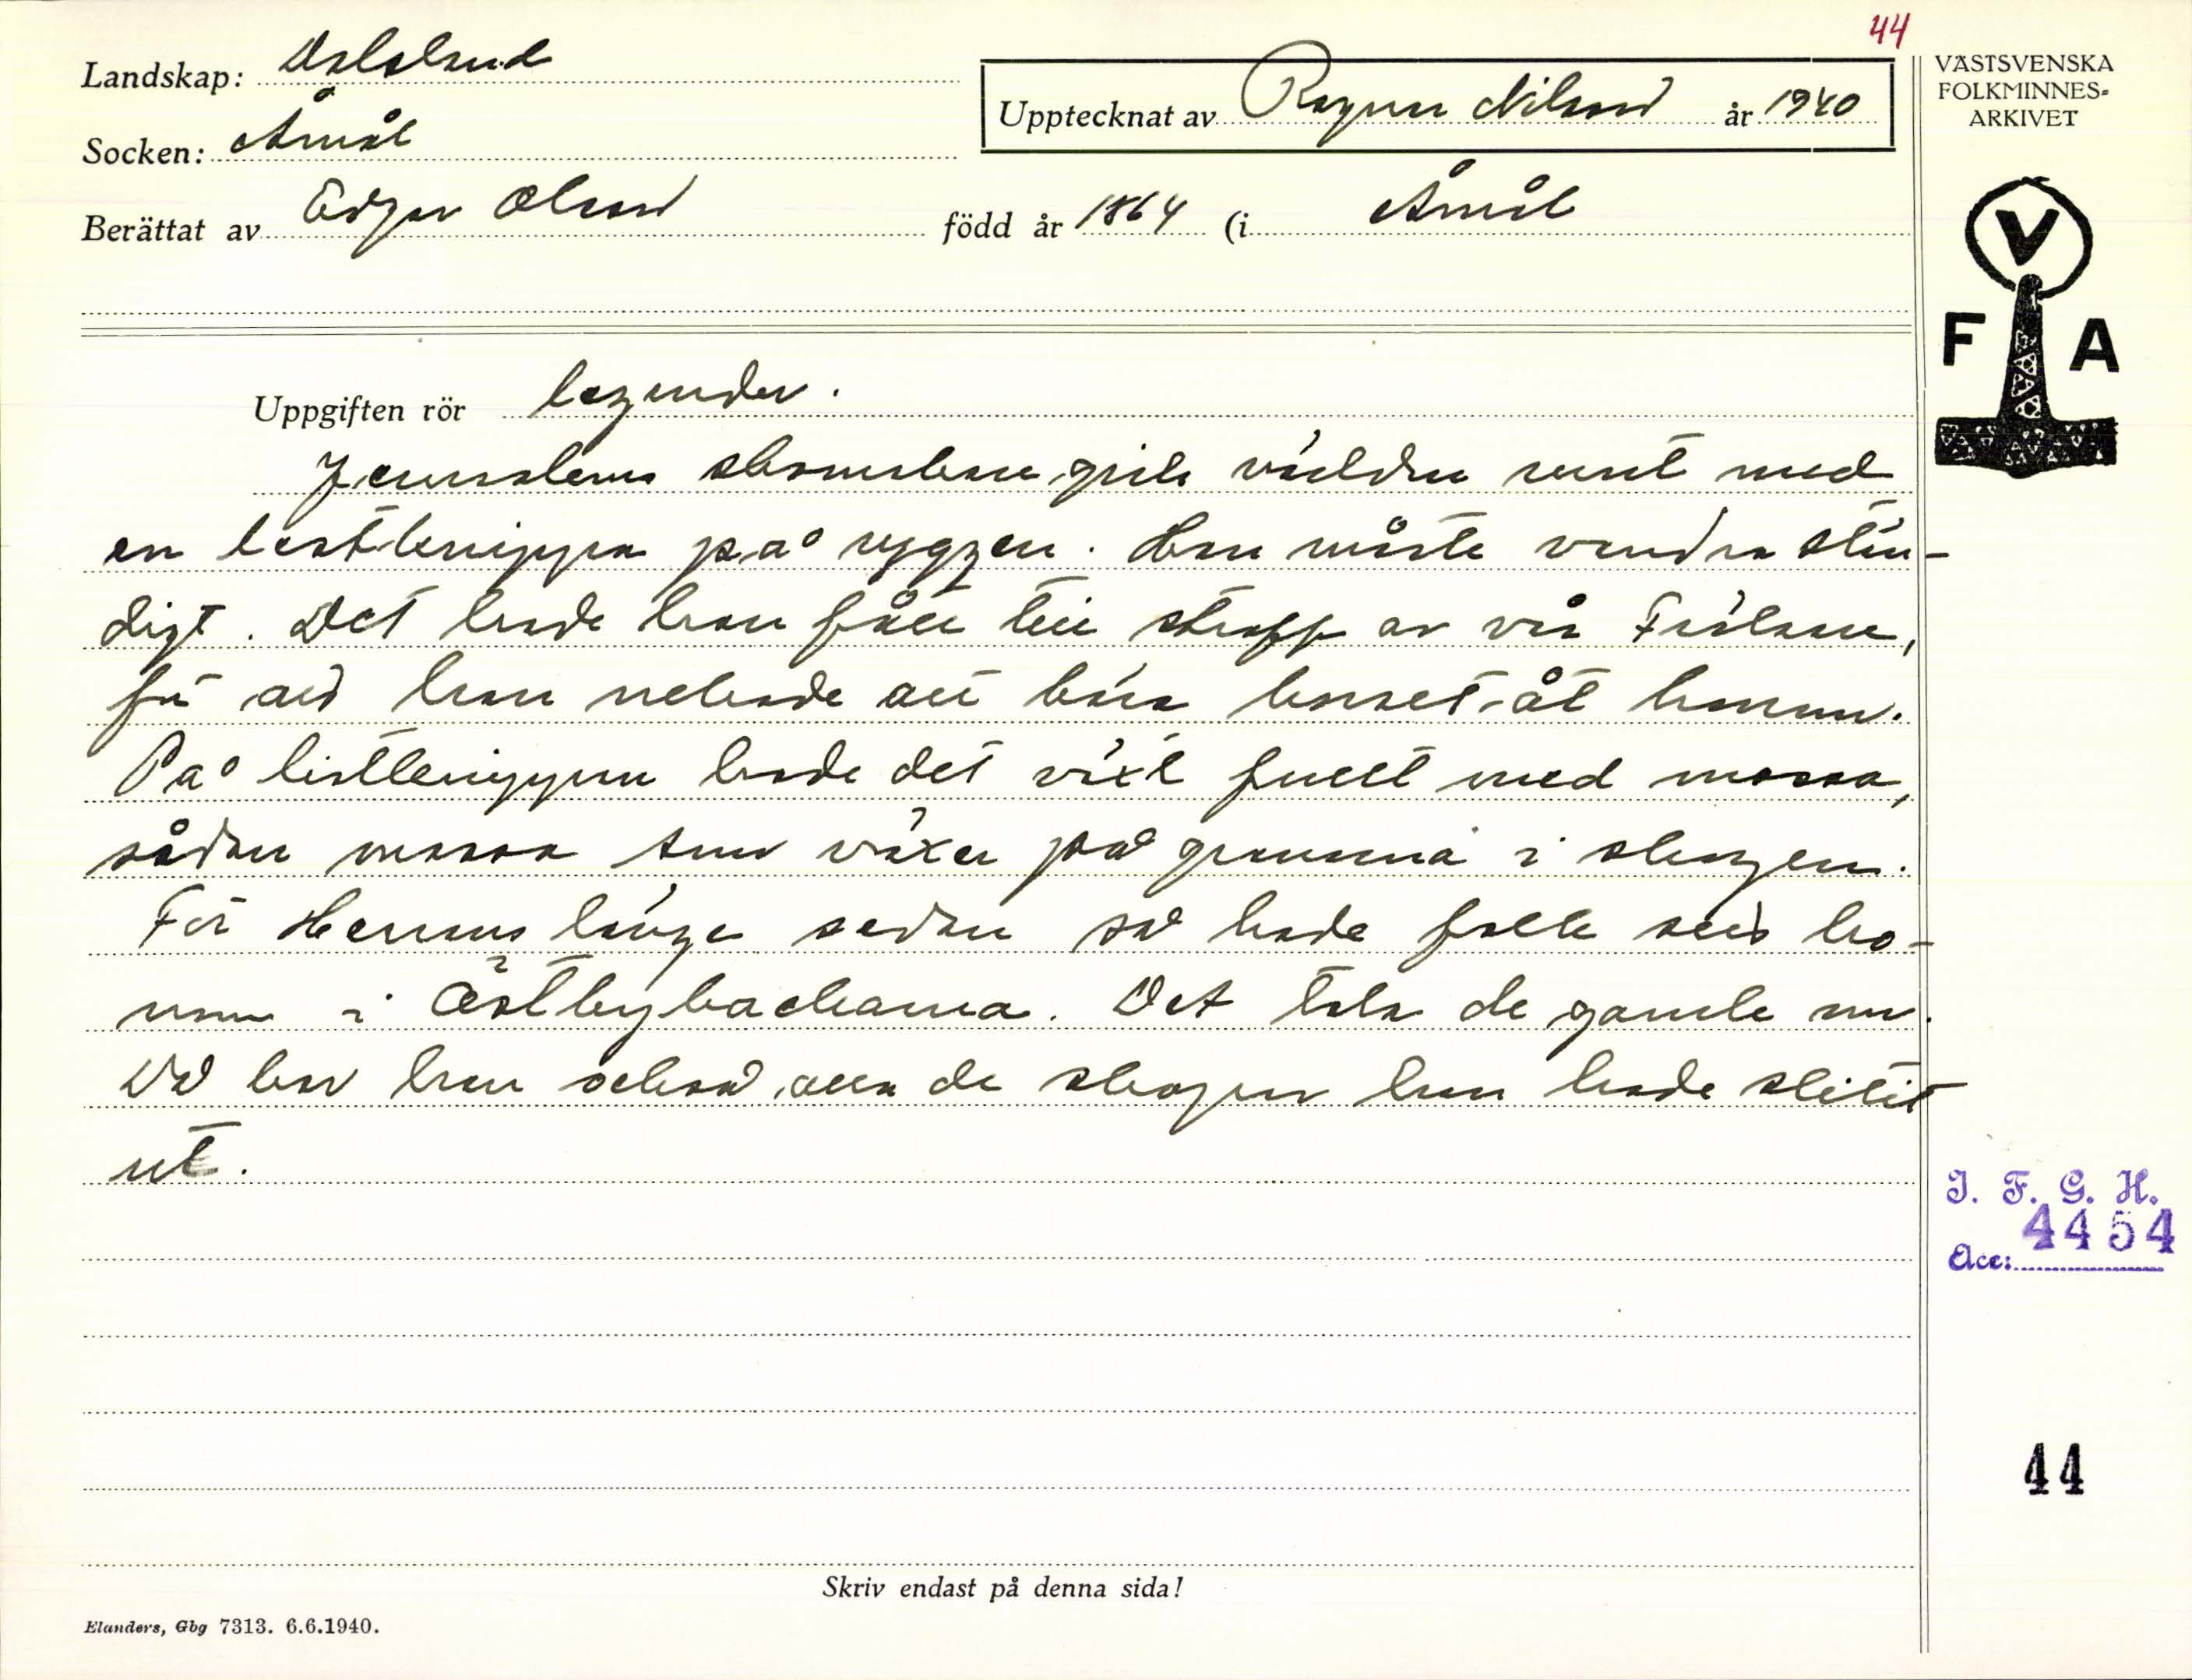 44
Landskap: Dalsland
Upptecknat av Ragnar Nilsson år 1940
VÄSTSVENSKA
FOLKMINNES-
ARKIVET
Socken: Åmål
Berättat av Edgar Olsson född år 1864 (i Åmål
V
F A
Uppgiften rör legender.
Jerusalems skomakare gick världen runt med
en lästknippa på ryggen. Han måste vandra stän-
digt. Det hade han fått till straff av vår Frälsare,
för att han nekade att bära korset åt honom.
På lästknippan hade det växt fullt med mossa,
sådan mossa som växer på granarna i skogen.
För Herrans länge sedan så hade folk sett ho-
nom i Östbybackarna. Det tala de gamle om.
Då bar han också alla de skogar han hade slitit
ut.
I. F. G. H.
4454
Acc:
44
Skriv endast på denna sida!
Elanders, Gbg 7313. 6.6.1940.